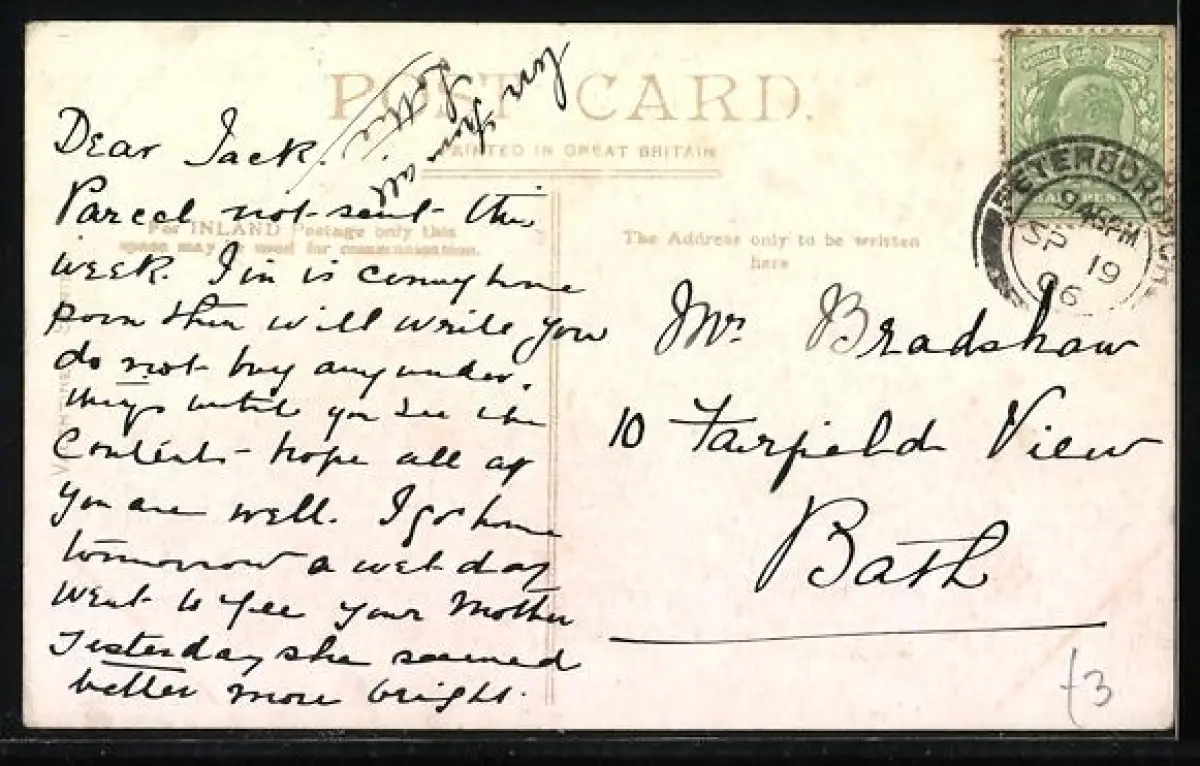 POST CARD.
PRINTED IN GREAT BRITAIN
For INLAND Postage only this
space may be used for communication.
The Address only to be written
here
PETERBOROUGH
9 45 PM
SP 19
06
HALF PENNY
Dear Jack.
Parcel not sent this
week. Jim is coming home
soon then will write you
do not buy any under.
things until you see the
Contents - hope all of
you are well. I go home
tomorrow a wet day
went to see your Mother
Yesterday she seemed
better more bright.
all
Mr Bradshaw
10 Fairfield View
Bath
£3